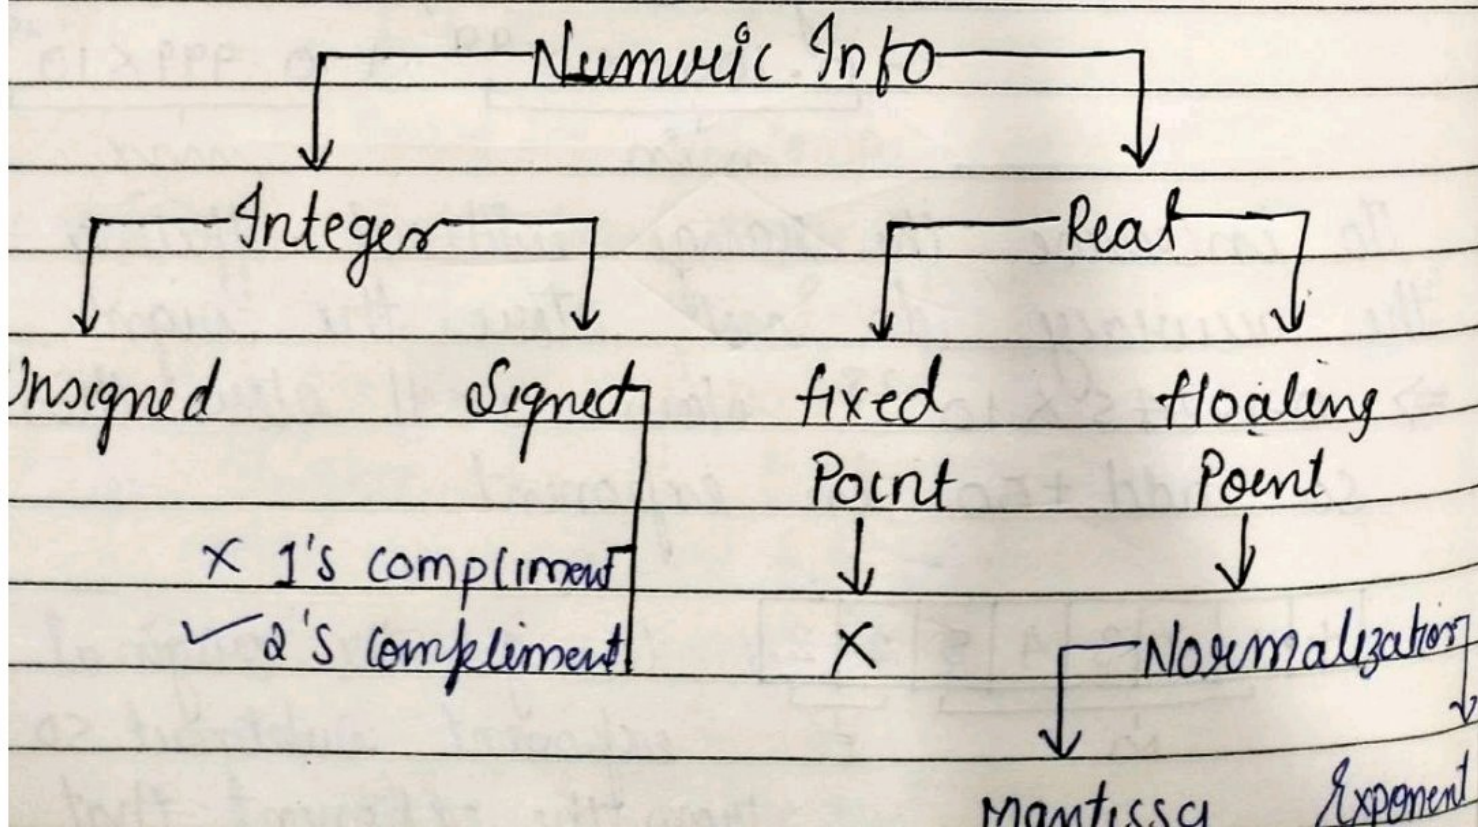 Numeric Info
Integer Real
Unsigned Signed fixed floating
Point Point
X 1's compliment
✓ 2's compliment X Normalization
Mantissa Exponent